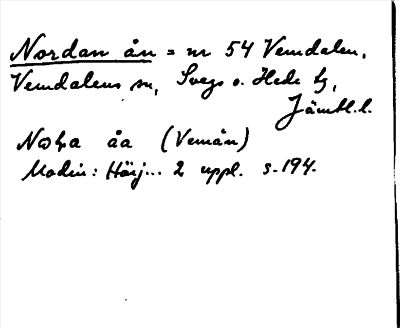 Nordan ån = nr 54 Vemdalen,
Vemdalens sn, Svegs o. Hede tg,
Jämtl. l.
åa (Vemån)
Modin: Härj... 2 uppl. s. 194.